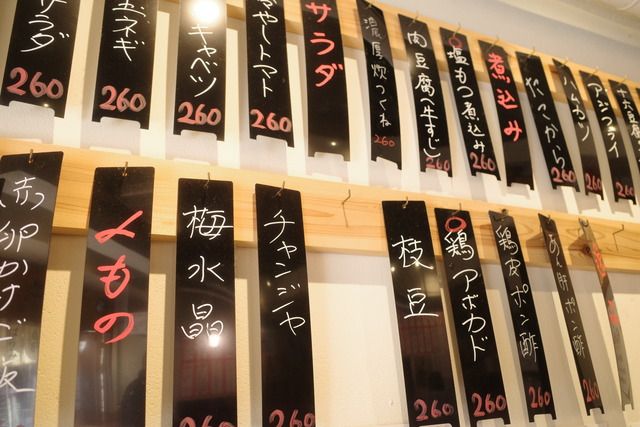 サラダ
260
玉ネギ
260
キャベツ
260
冷やしトマト
260
サラダ
濃厚炊つくね
260
肉豆腐(牛すじ)
260
塩もつ煮込み
260
煮込み
たこから
260
ハムカツ
260
アジフライ
260
赤卵かけご飯
〆もの
梅水晶
260
チャンジャ
260
枝豆
260
鶏アボカド
260
鶏皮ポン酢
260
あん肝ポン酢
260